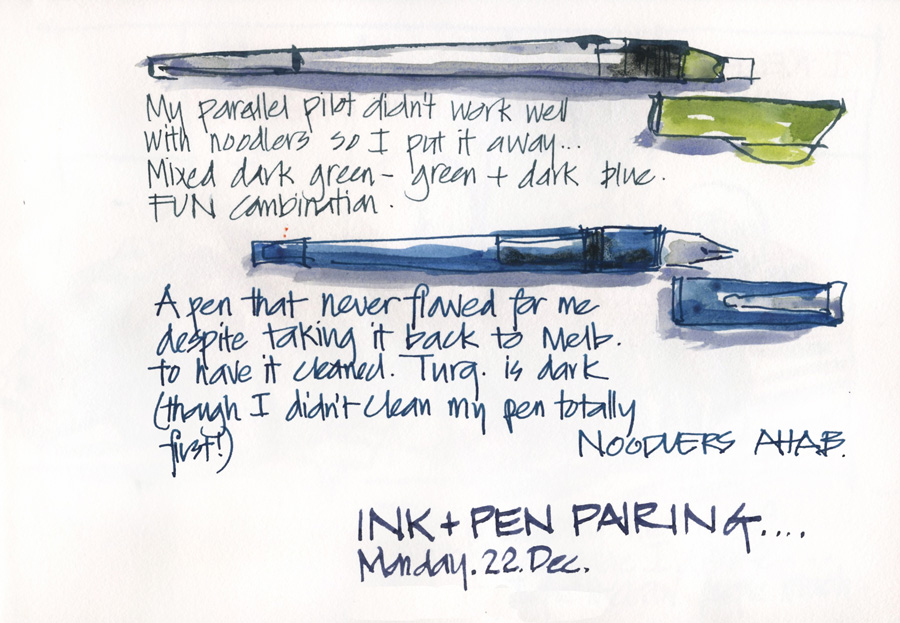 My parallel pilot didn't work well
with noodlers so I put it away...
Mixed dark green - green + dark blue.
FUN combination.
A pen that never flowed for me
despite taking it back to Melb.
to have it cleaned. Turq. is dark
(though I didn't clean my pen totally
first!)
NOODLERS AHAB.
INK + PEN PAIRING....
Monday. 22. Dec.